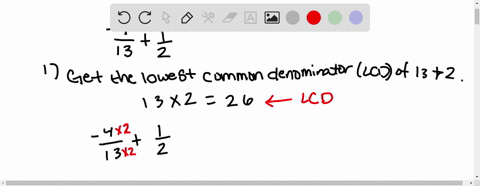 13 + 1/2
1) Get the lowest common denominator (LCD) of 13 + 2.
13 x 2 = 26 ← LCD
-4 x2 / 13 x2 + 1/2